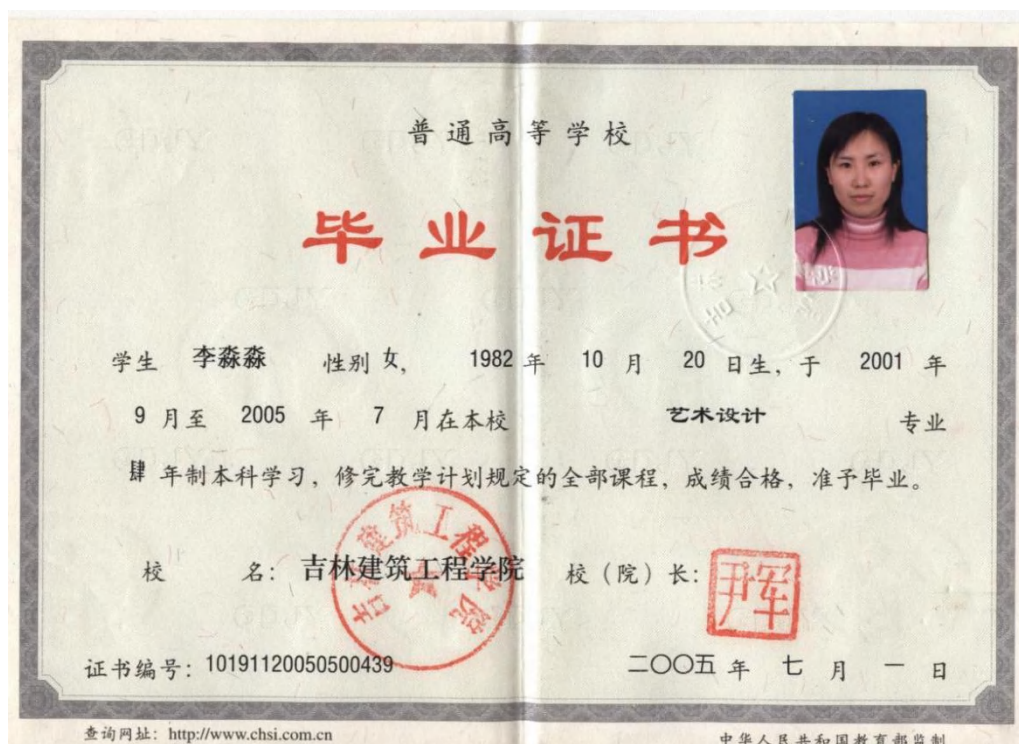 普通高等学校
毕业证书
学生 李淼淼 性别 女, 1982 年 10 月 20 日生, 于 2001 年
9 月至 2005 年 7 月在本校 艺术设计 专业
肆 年制本科学习, 修完教学计划规定的全部课程, 成绩合格, 准予毕业。
校 名: 吉林建筑工程学院 校（院）长:
吉林建筑工程学院
证书编号: 10191120050500439 二〇〇五 年 七 月 一 日
查询网址: http://www.chsi.com.cn 中华人民共和国教育部监制